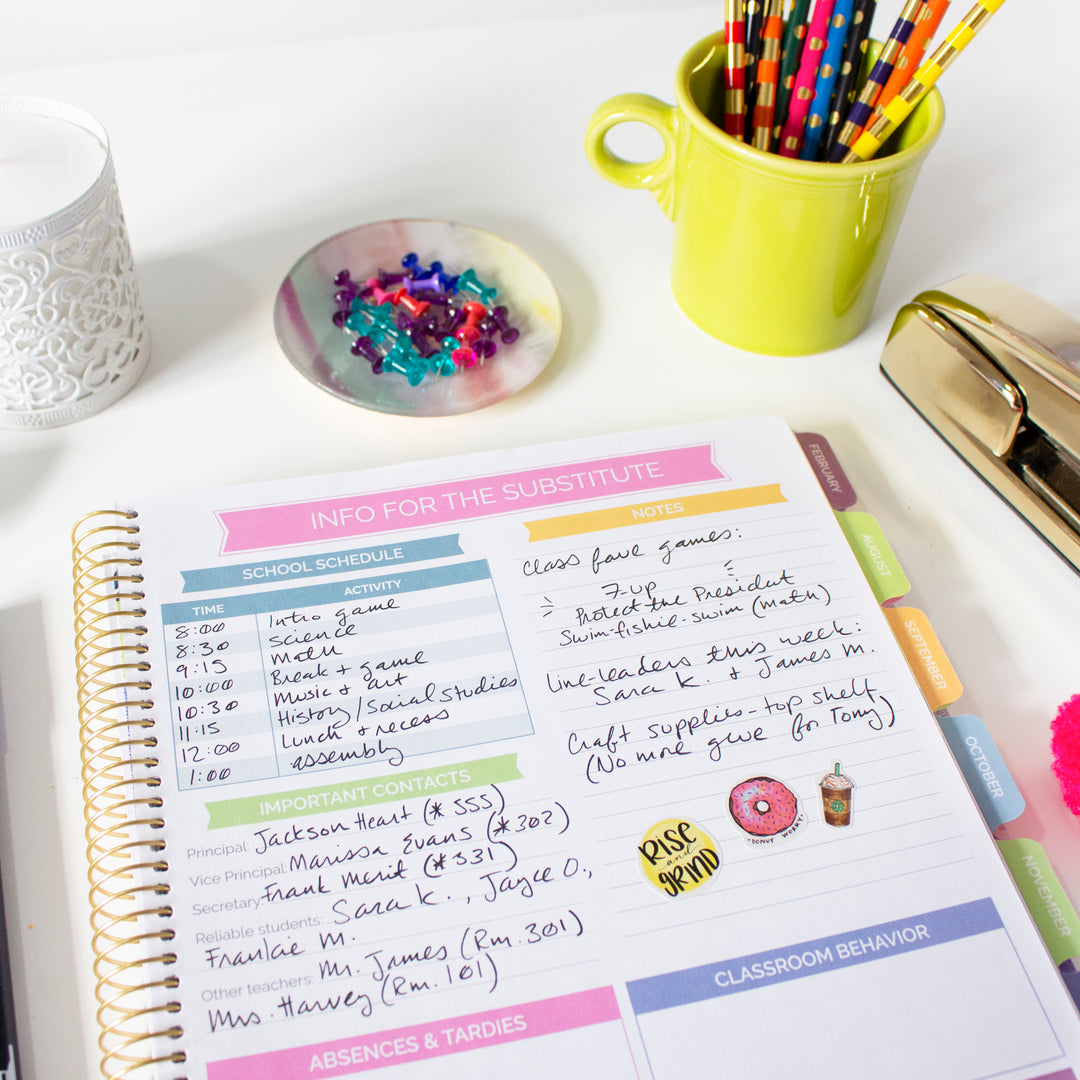 INFO FOR THE SUBSTITUTE
SCHOOL SCHEDULE
TIME ACTIVITY
8:00 Intro game
8:30 Science
9:15 Math
10:00 Break + game
10:30 Music + art
11:15 History/Social Studies
12:00 Lunch + recess
1:00 assembly
IMPORTANT CONTACTS
Principal: Jackson Heart (*555)
Vice Principal: Marissa Evans (*302)
Secretary: Frank Merit (*331)
Reliable students: Sara K., Jayce O.,
Frankie M.
Other teachers: Mr. James (Rm. 301)
Mrs. Harvey (Rm. 101)
ABSENCES & TARDIES
NOTES
Class fave games:
7-up
Protect the President
Swim-fishie-swim (math)
Line-leaders this week:
Sara K. + James M.
Craft supplies - top shelf
(No more glue for Tony)
RISE
and
GRIND
DONUT WORRY
CLASSROOM BEHAVIOR
FEBRUARY
AUGUST
SEPTEMBER
OCTOBER
NOVEMBER